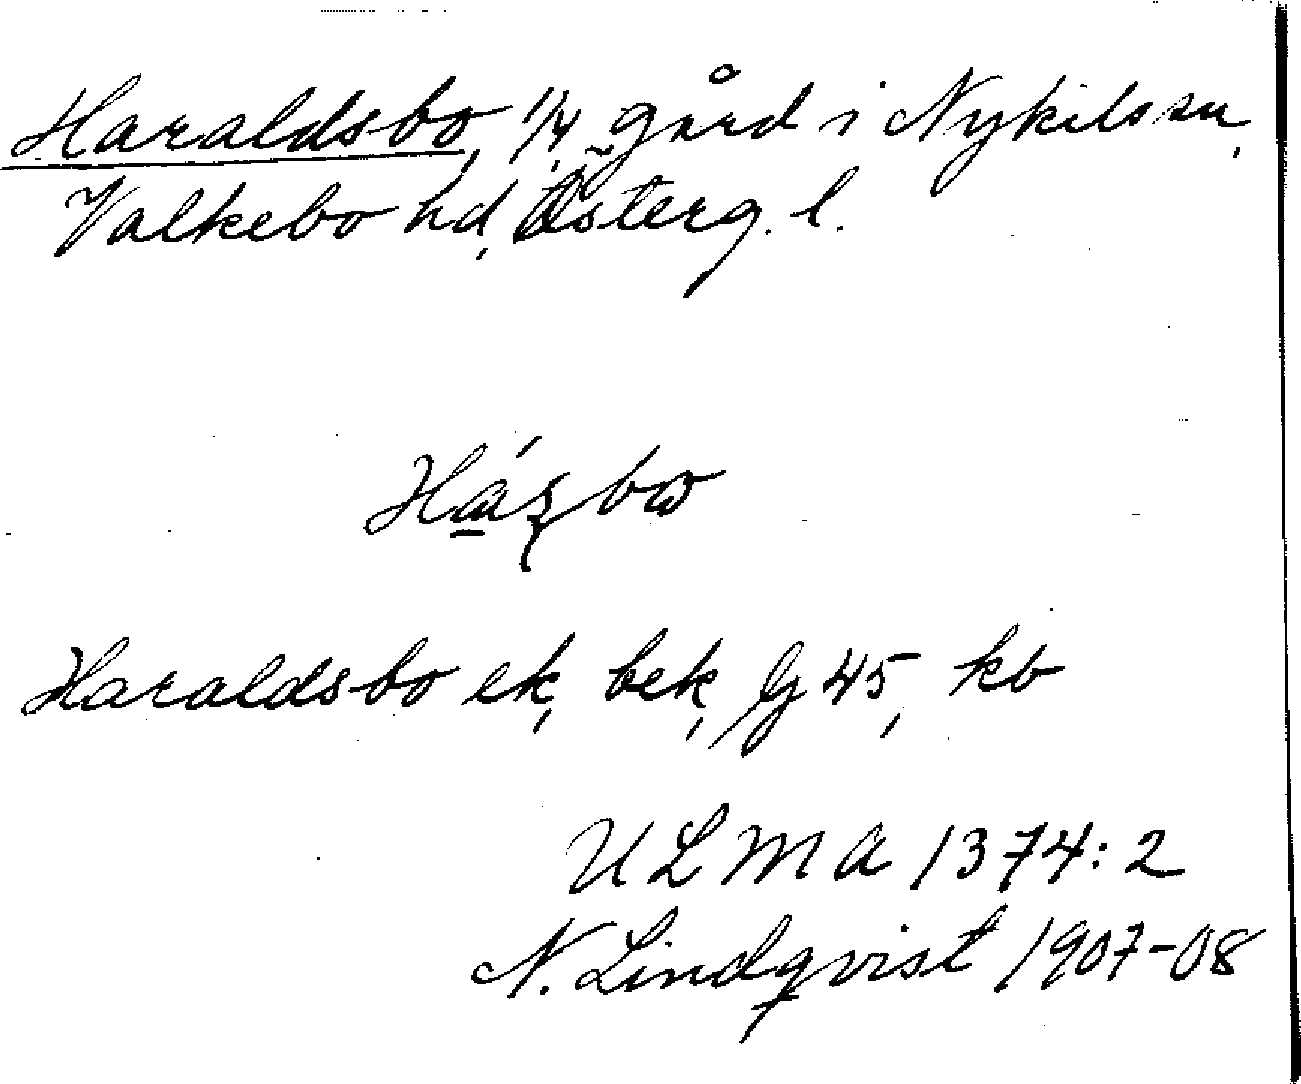 Haraldsbo, 1/4 gård i Nykils sn,
Valkebo hd, Österg. l.
Haraldsbo ek, bek, G 45, kb
ULMA 1374:2
N. Lindqvist 1907-08